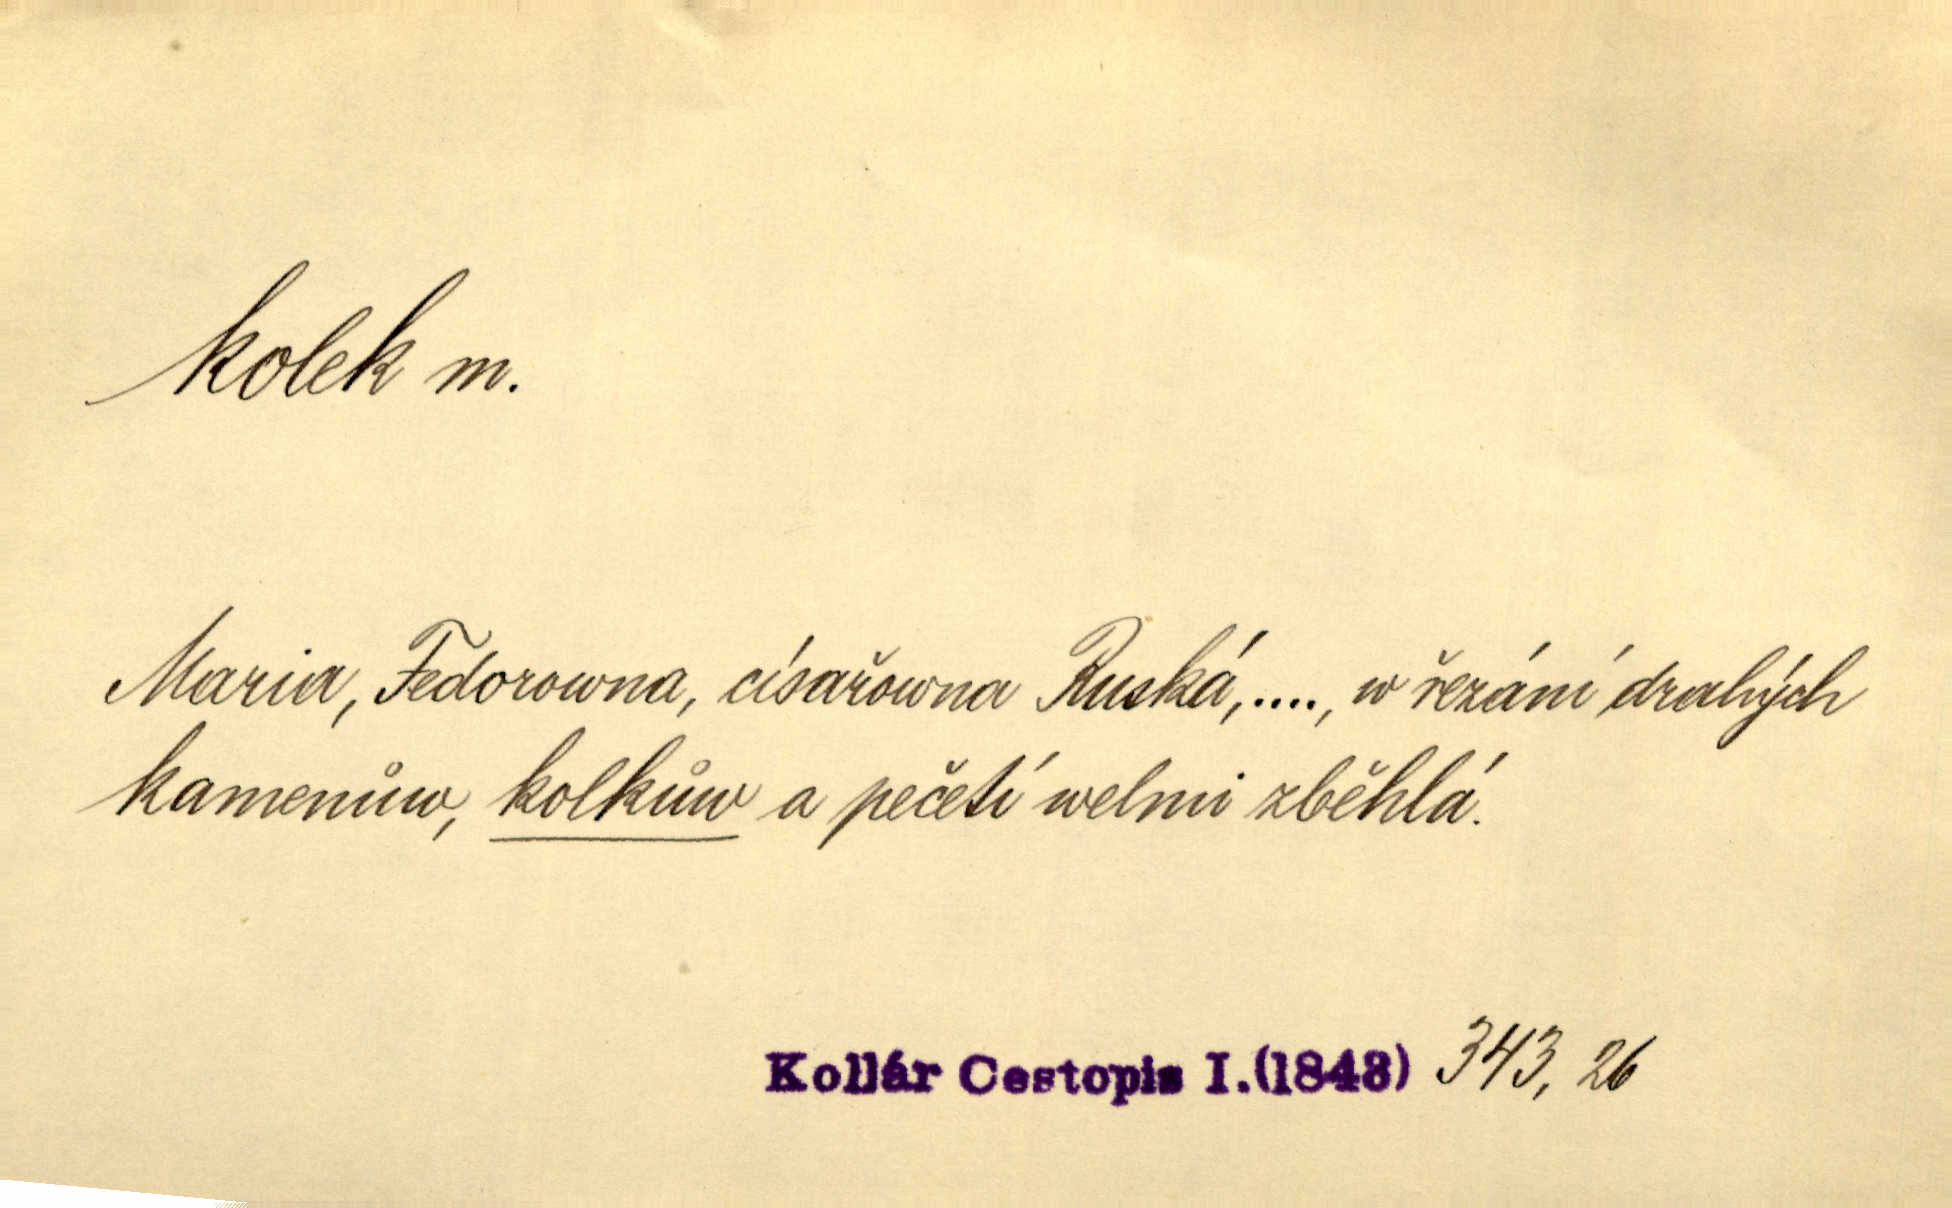 kolek m.
Maria, Fedorowna, císařowna Ruská,...., w řezání drahých
kamenůw, kolkůw a pečetí welmi zběhlá.
Kollár Cestopis I.(1843) 343, 26